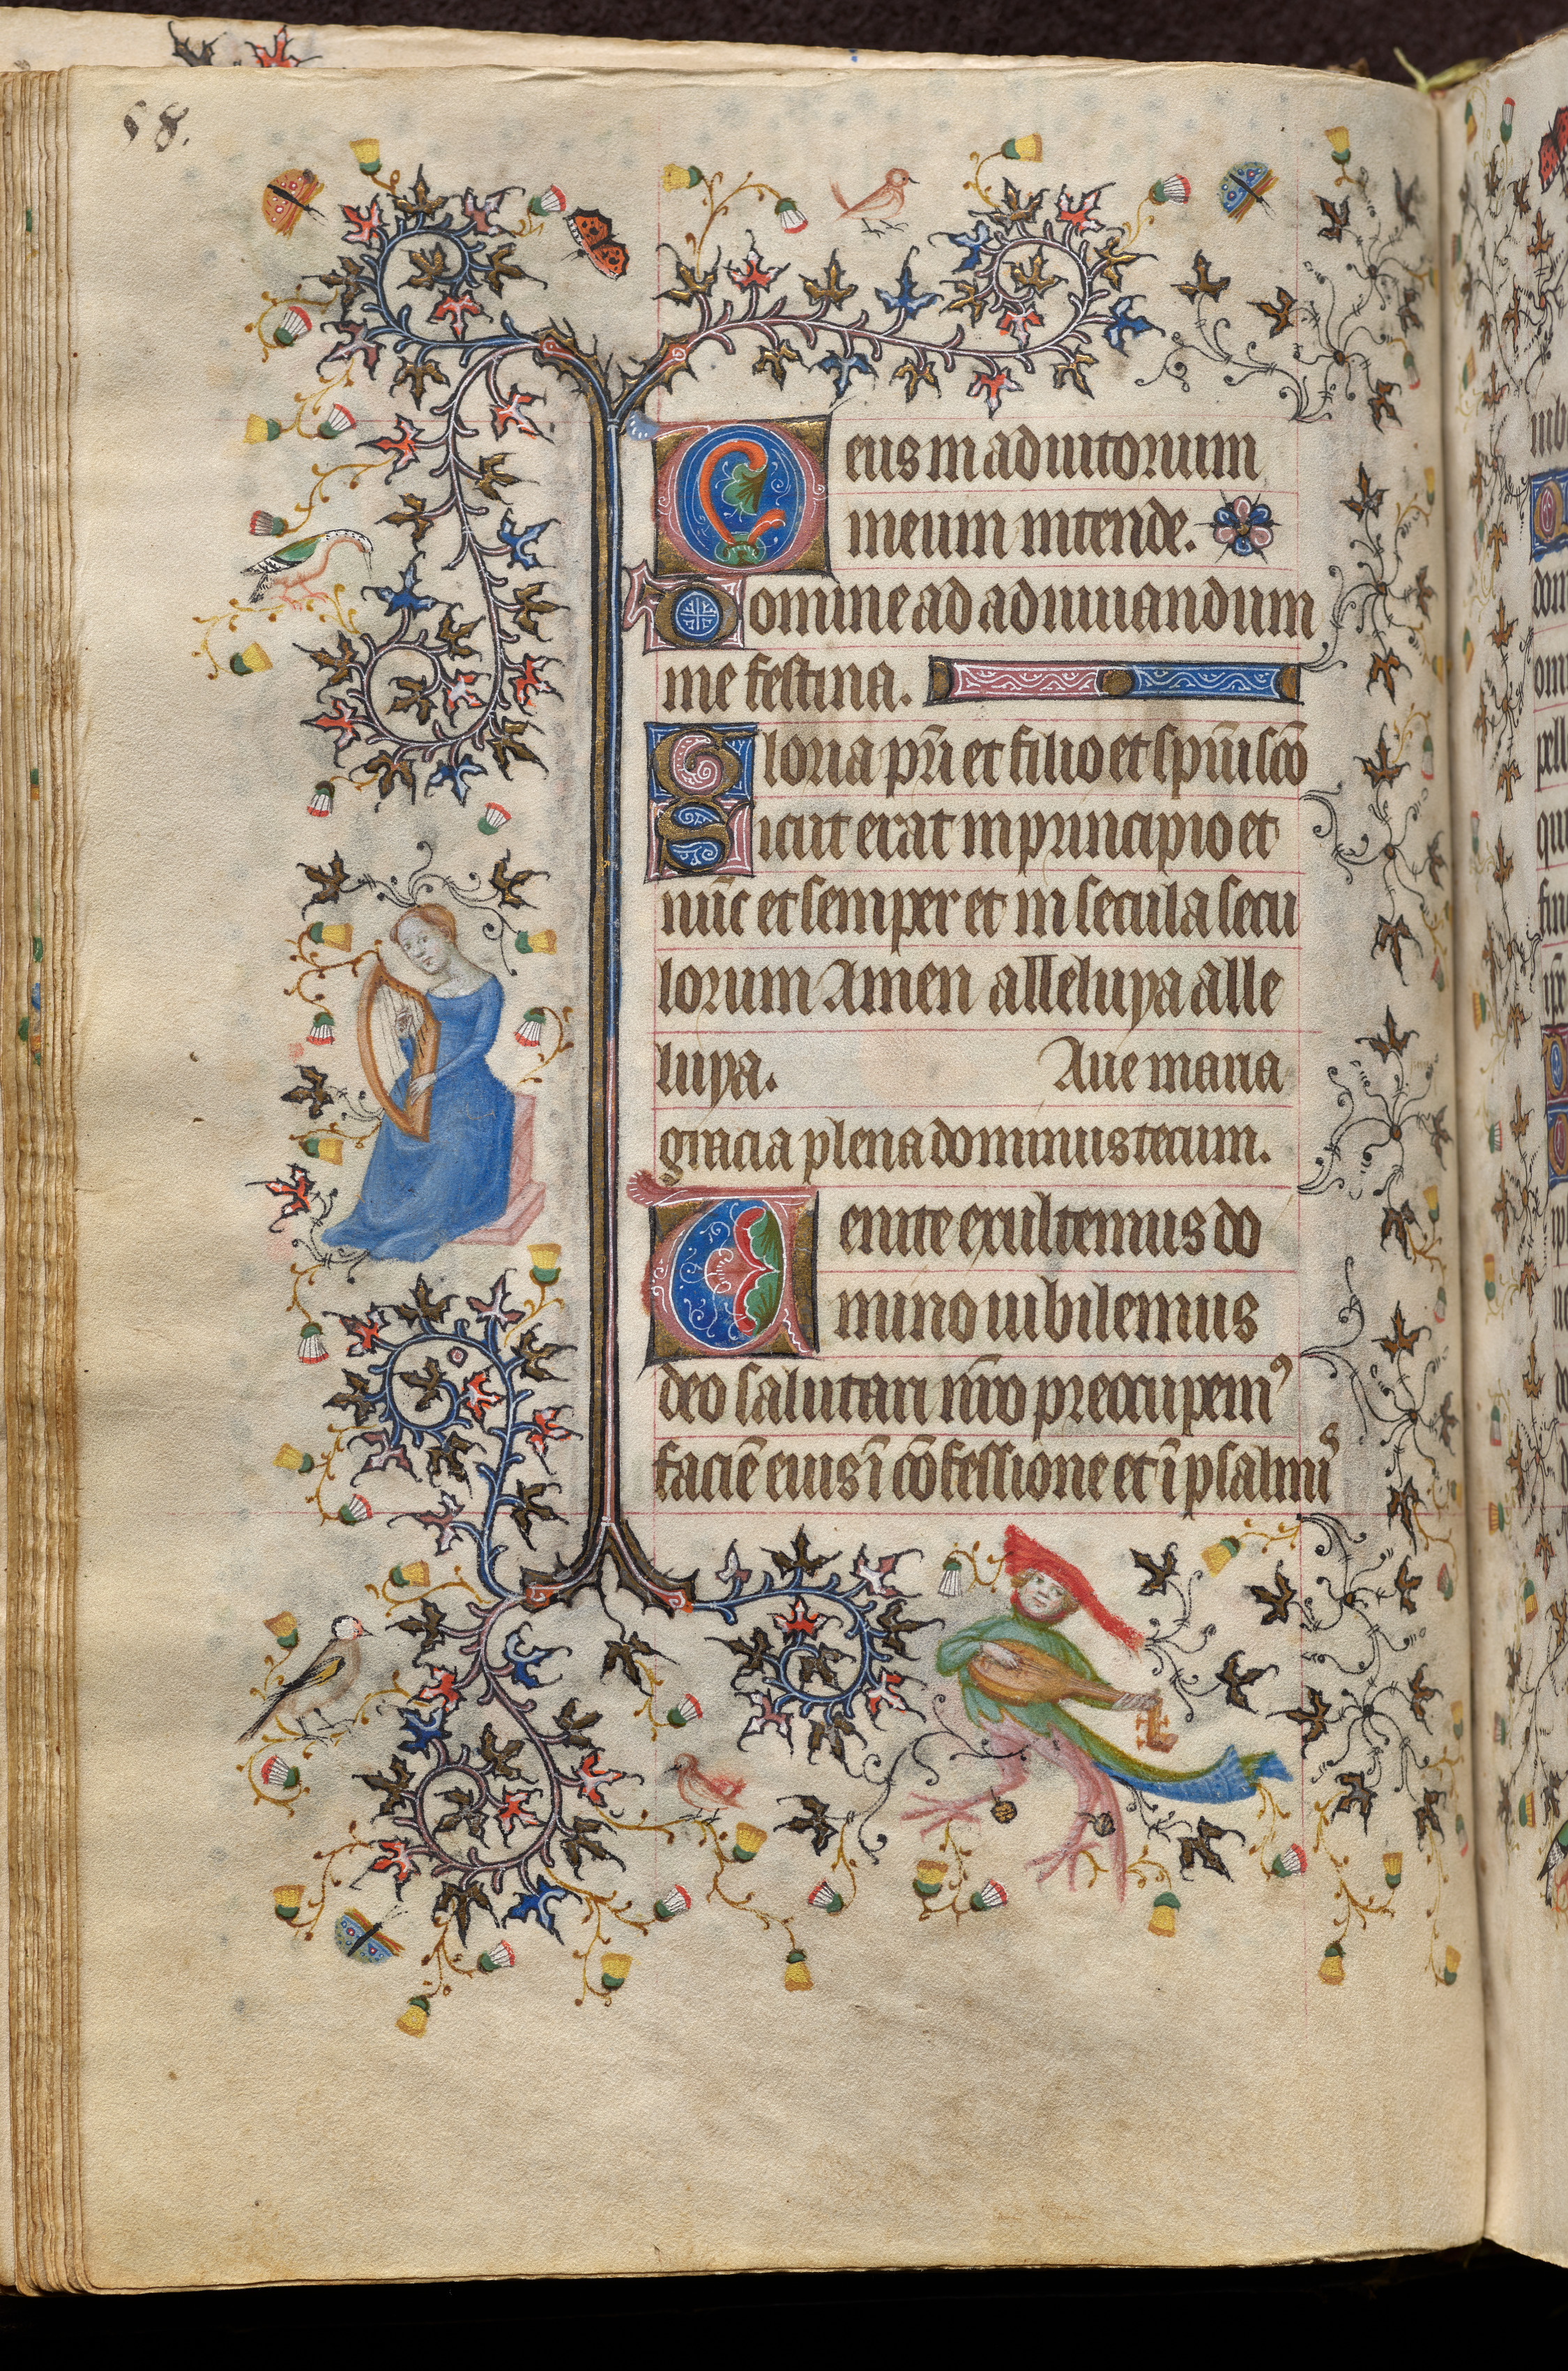 58.
Deus in adiutorium
meum intende.
Domine ad adiuuandum
me festina.
Gloria pr̄i et filio et spūi scō
Sicut erat in principio et
nūc et semper et in secula secu
lorum Amen alleluya alle
luya. Aue maria
gracia plena dominus tecum.
Uenite exultemus do
mino iubilemus
deo salutari nr̄o preocupemꝰ
faciē eius ī cōfessione et ī psalmis